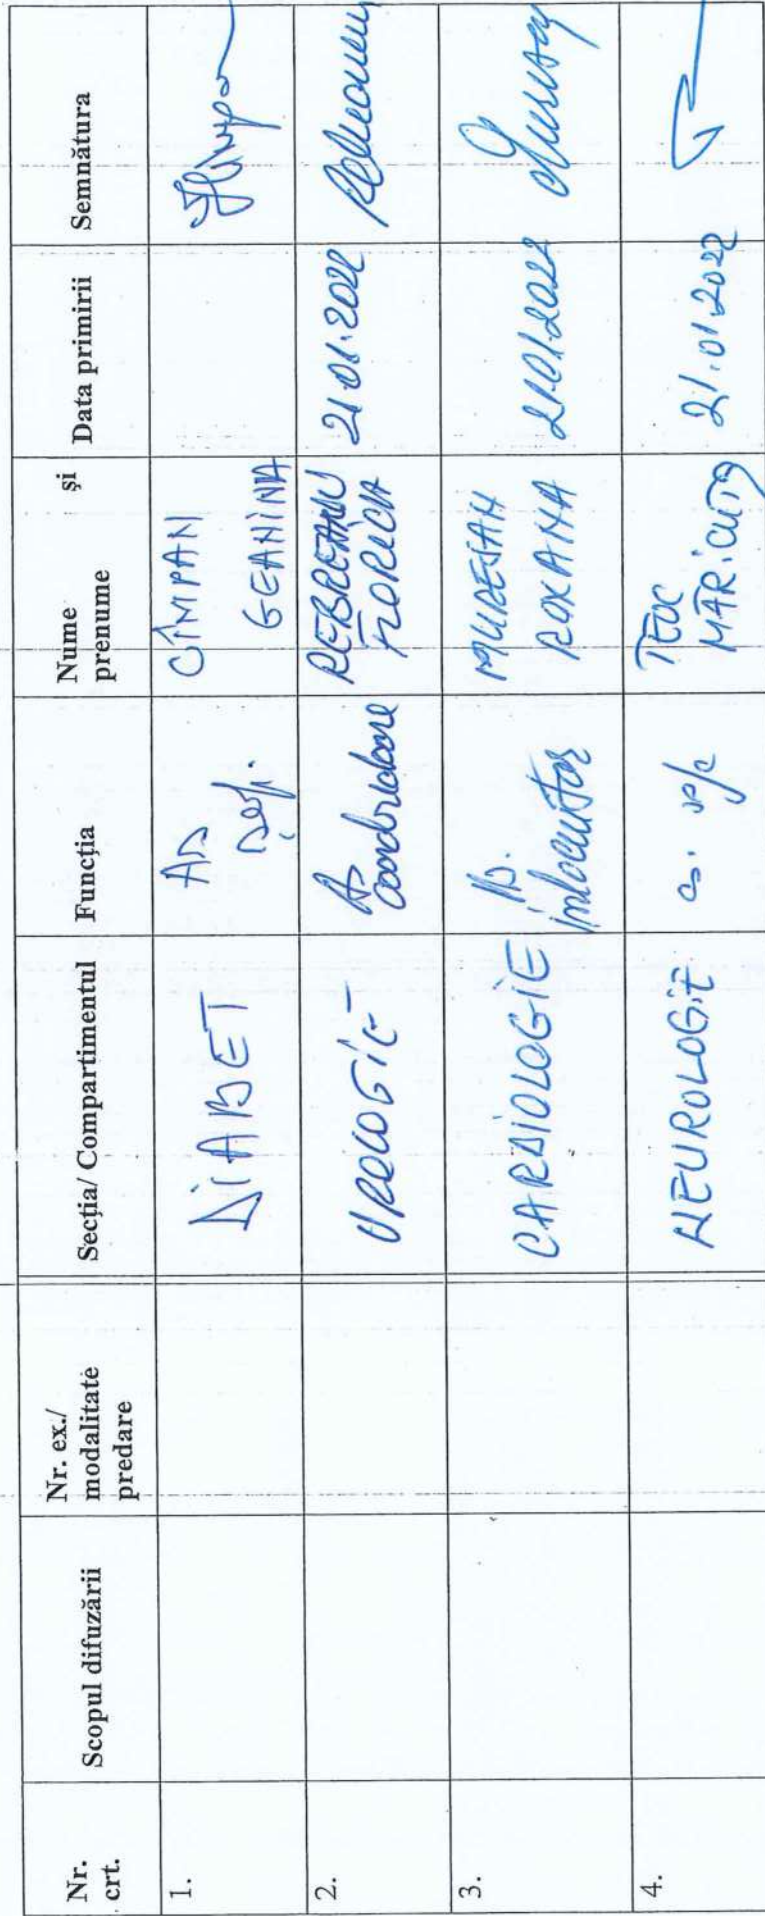 Nr. crt. Scopul difuzării Nr. ex./ modalitate predare Secția/ Compartimentul Funcția Nume și prenume Data primirii Semnătura
1. DIABET As CÎMPAN GEANINA
2. UROLOGIE As coordonatoare REBREANU FLORICA 21.01.2022
3. CARDIOLOGIE As. înlocuitor MUREȘAN ROXANA 21.01.2022
4. NEUROLOGIE MĂRICUȚA 21.01.2022